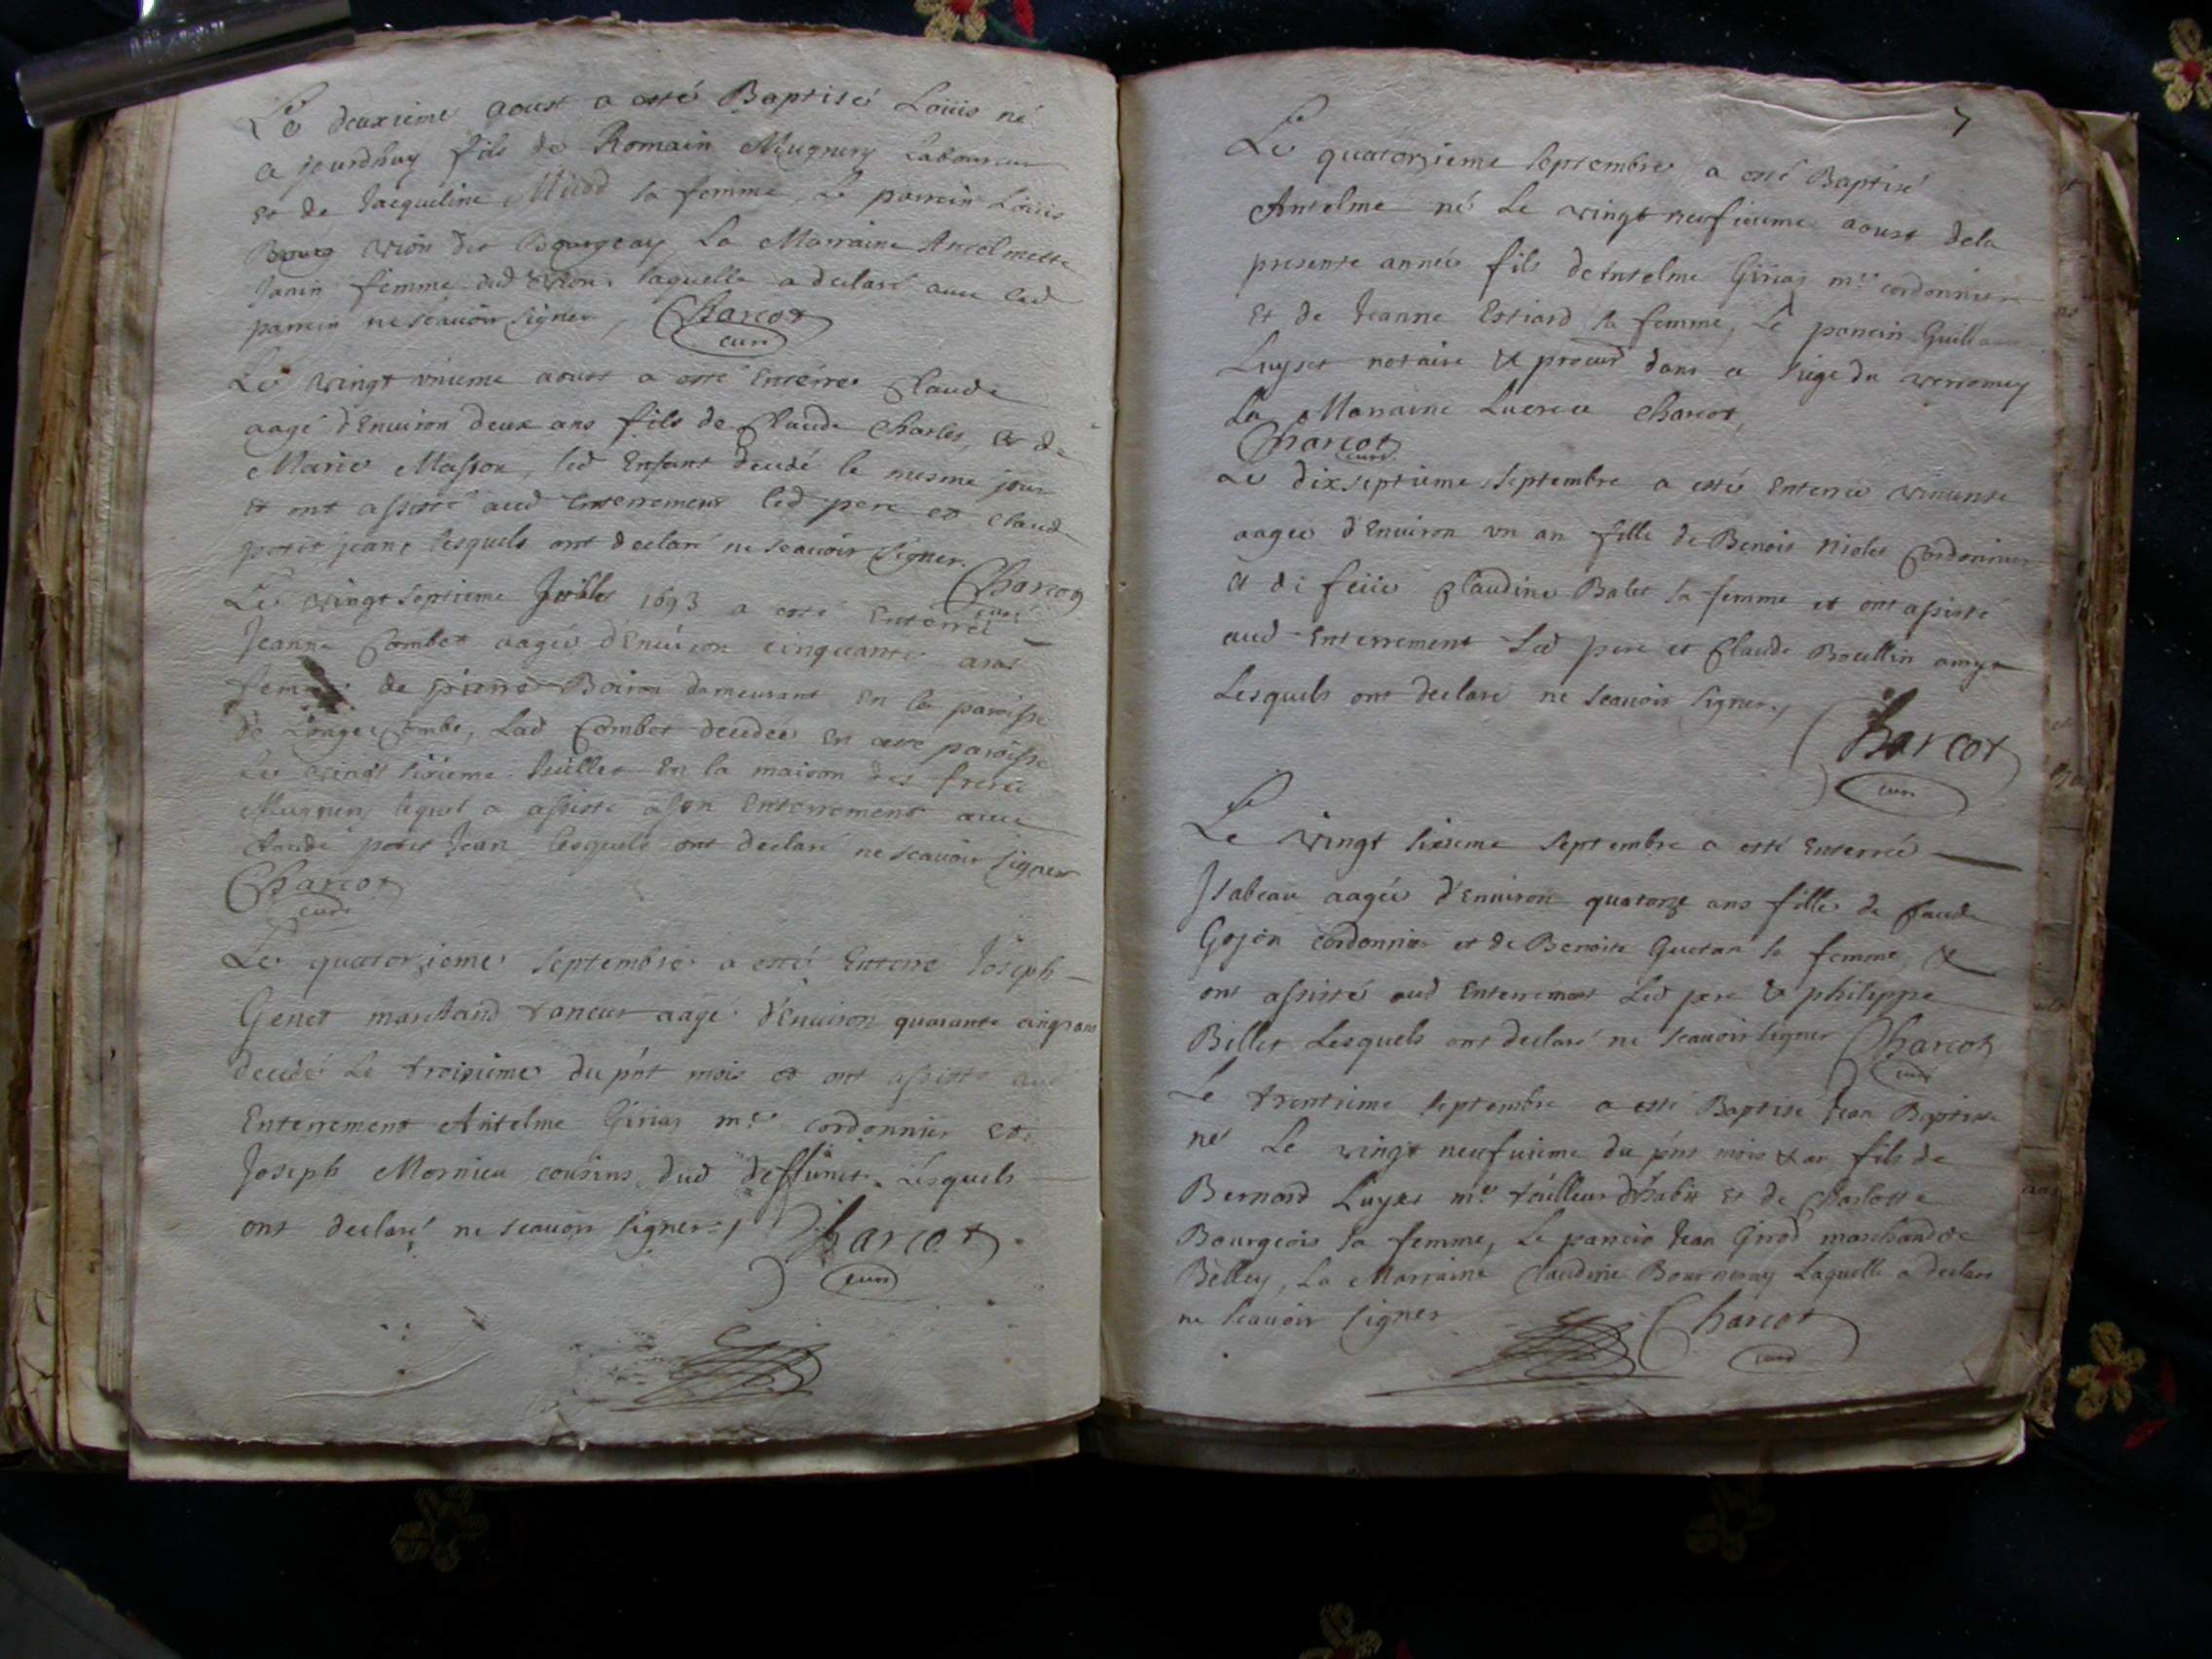 Le deuxieme aoust a esté Baptisé Loüis né
a jourdhuy fils de Romain Mugnery Laboureur
et de Jacqueline sa femme, Le parrein Loüis
vion dit Bourgeay, La Marraine Antelmette
Janin femme dud vion, laquelle a declaré avec led
parrein ne scauoir signer, Charcot
curé
Le vingt vnieme aoust a esté Enterré Claude
aagé d'Enuiron deux ans fils de Claude Charles, et de
Marie Masson, led Enfant decedé le mesme jour
et ont assisté aud Enterrement led pere et Claude
petit jean, lesquels ont declaré ne scauoir signer.
Charcot
curé
Le vingt septieme Juillet 1693 a esté Enterrée
Jeanne Combet aagée d'Enuiron cinquante ans
femme de pierre Boiron demeurant En la paroisse
de Longecombe, Lad Combet decedée En cette paroisse
Le vingt sixieme Juillet En la maison des freres
Mugnery lequel a assisté a son Enterrement auec
Claude petit Jean lesquels ont declaré ne scauoir signer
Charcot
curé
Le quatorzieme septembre a esté Enterré Joseph
Genet marchand taneur aagé d'Enuiron quarante cinq ans
decedé Le troisieme du pnt mois et ont assisté aud
Enterrement Antelme Girias mre cordonnier et
Joseph Mornieu cousins dud deffunct, Lesquels
ont declaré ne scauoir signer, Charcot
curé
7
Le quatorzieme septembre a esté Baptisé
Antelme né Le vingt neufieme aoust de la
presente année fils de Antelme Girias mre cordonnier
Et de Jeanne Estiard sa femme, Le parrein Guillaume
Luyset notaire & procur dans ce siege du verromey
La Marraine Lucrece Charcot,
Charcot
curé
Le dixseptieme septembre a esté Enterrée vincente
aagée d'Enuiron vn an fille de Benoit Niolet Cordonnier
et de feüe Claudine Balet sa femme et ont assisté
aud Enterrement Led pere et Claude Boullin
Lesquels ont declaré ne scauoir signer,
Charcot
curé
Le vingt sixieme septembre a esté Enterrée
Isabeau aagée d'Enuiron quatorze ans fille de Claude
Gojon cordonnier et de Benoite Guetan sa femme &
ont assisté aud Enterrement Led pere & philippe
Billet Lesquels ont declaré ne scauoir signer Charcot
curé
Le trentieme septembre a esté Baptisé Jean Baptiste
né Le vingt neufuieme du pnt mois & an fils de
Bernard Luyset mre tailleur d'habit Et de Charlotte
Bourgeois sa femme, Le parrein Jean Girod marchand de
Belley, La Marraine Claudine Laquelle a declaré
ne scauoir signer Charcot
curé